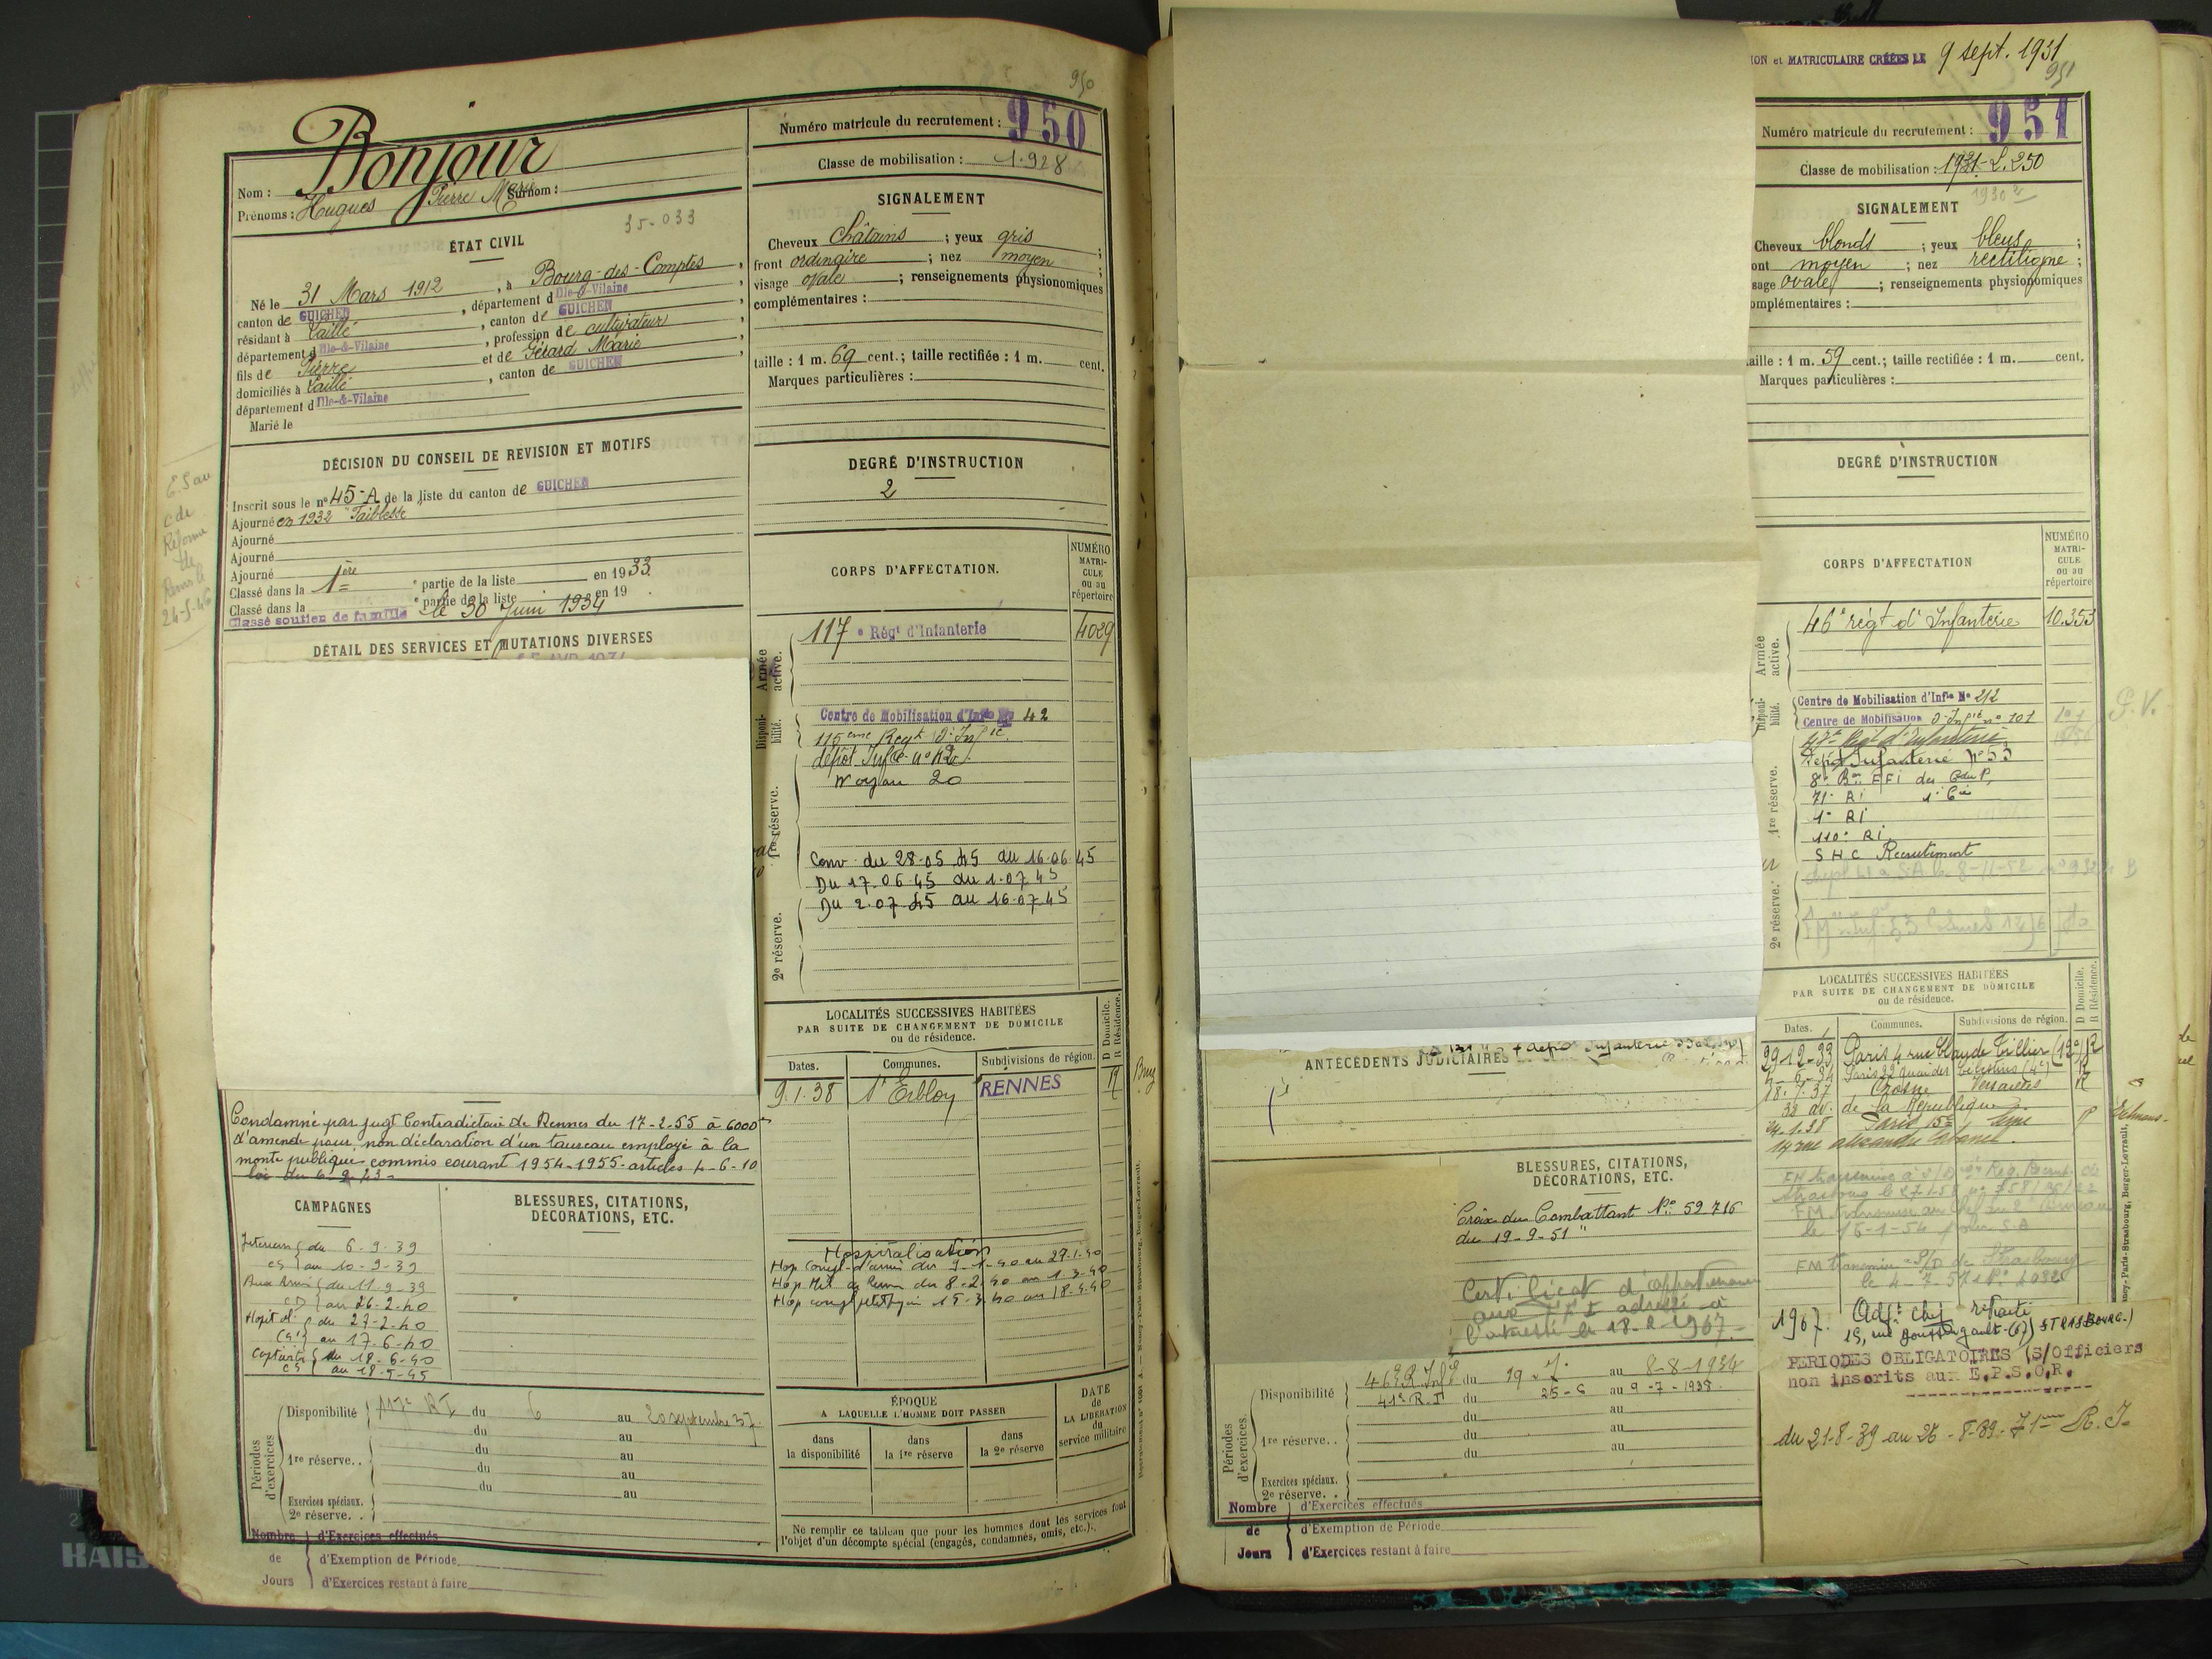 950
Numéro matricule du recrutement : 950
Classe de mobilisation : 1.928
Nom : Bonjour
Surnom :
Prénoms : Hugues Pierre Marie
35-033
ÉTAT CIVIL
Né le 31 Mars 1912, à Bourg-des-Comptes,
canton de GUICHEN, département d Ille-&-Vilaine,
résidant à Laillé, canton de GUICHEN,
département d Ille-&-Vilaine, profession de cultivateur,
fils de Pierre et de Gérard Marie,
domiciliés à Laillé, canton de GUICHEN,
département d Ille-&-Vilaine
Marié le
DÉCISION DU CONSEIL DE REVISION ET MOTIFS
Inscrit sous le n° 45-A de la liste du canton de GUICHEN
Ajourné en 1932 "Faiblesse
Ajourné
Ajourné
Ajourné
Classé dans la 1ère partie de la liste en 1933.
Classé dans la ° partie de la liste en 19
Classé soutien de famille le 30 Juin 1934
DÉTAIL DES SERVICES ET MUTATIONS DIVERSES
E.S au
c de
Réforme
de
Rennes le
24-5-46
Condamné par jugt Contradictoire de Rennes du 17-2-55 à 6000
d'amende pour non déclaration d'un taureau employé à la
monte publique commis courant 1954-1955- articles 4-6-10
loi du 6-2-43-
CAMPAGNES
Interieur du 6-9-39
CS au 10-9-39
Aux Armées du 11-9-39
CD au 26-2-40
Hopital du 27-2-40
CS au 17-6-40
Captivité du 18-6-40
CS au 18-5-45
BLESSURES, CITATIONS,
DÉCORATIONS, ETC.
Périodes d'exercices
Disponibilité 117e RI du 6 au 20 septembre 37.
du au
1re réserve.. du au
du au
du au
Exercices spéciaux.
2e réserve. .
Nombre d'Exercices effectués
de d'Exemption de Période
Jours d'Exercices restant à faire
SIGNALEMENT
Cheveux châtains ; yeux gris ;
front ordinaire ; nez moyen ;
visage ovale ; renseignements physionomiques
complémentaires :
taille : 1 m. 69 cent.; taille rectifiée : 1 m. cent.
Marques particulières :
DEGRÉ D'INSTRUCTION
2
CORPS D'AFFECTATION.
NUMÉRO
MATRI-
CULE
ou au
répertoire
Armée active.
117e Régt d'Infanterie 4029
Disponibilité.
Centre de Mobilisation d'Infie No 42
115eme Regt d'Infie.
dépôt Infie n° 42
Noyau 20
1re réserve.
Conv du 28-05-45 au 16-06-45
Du 17.06.45 au 1.07.45
Du 2.07.45 au 16.07.45
2e réserve.
LOCALITÉS SUCCESSIVES HABITÉES
PAR SUITE DE CHANGEMENT DE DOMICILE
ou de résidence.
Dates. Communes. Subdivisions de région. D Domicile. R Résidence.
9.1.38 St Erblon RENNES R
Hospitalisation
Hop Compl d'armée du 9-1-40 au 27-1-40
Hop. Mil de Rennes du 8-2-40 au 1-3-40
Hop compl 15-3-40 au 18-4-40
ÉPOQUE
A LAQUELLE L'HOMME DOIT PASSER
dans la disponibilité
dans la 1re réserve
dans la 2e réserve
DATE
de
LA LIBÉRATION
du
service militaire
Ne remplir ce tableau que pour les hommes dont les services font
l'objet d'un décompte spécial (engagés, condamnés, omis, etc.).
ION et MATRICULAIRE CRÉÉES LE 9 sept. 1931
951
Numéro matricule du recrutement : 951
Classe de mobilisation : 1931-2.250
1930
SIGNALEMENT
Cheveux blonds ; yeux bleus ;
ont moyen ; nez rectiligne ;
sage ovale ; renseignements physionomiques
omplémentaires :
aille : 1 m. 59 cent.; taille rectifiée : 1 m. cent.
Marques particulières :
DEGRÉ D'INSTRUCTION
CORPS D'AFFECTATION
NUMÉRO
MATRI-
CULE
ou au
répertoire
Armée active.
46e régt d'Infanterie 10.353
Disponibilité.
Centre de Mobilisation d'Infie No 212
Centre de Mobilisation d'Infie n° 101
47e Regt d'Infanterie
Dépôt Infanterie N° 53
8e Bon FFI des Cdu P.
71e RI 1e Cie
4e RI
110e RI
SHC Recrutement
G.V.
1re réserve.
2e réserve.
LOCALITÉS SUCCESSIVES HABITÉES
PAR SUITE DE CHANGEMENT DE DOMICILE
ou de résidence.
Dates. Communes. Subdivisions de région. D Domicile. R Résidence.
29-12-33 Paris 4 rue Claude Tillier (12e) R
Paris 22 quai des Célestins (4e) R
18-7-37 Crosne Versailles R
32 av. de la République
24-1-38 Paris 15e Seine R
14 rue Alexandre Cabanel.
le 15-1-54 pour S.A
FM transmise S/D de Strasbourg
1967. Adjt Chef retraité
15, rue Boussingault (67) STRASBOURG.
PERIODES OBLIGATOIRES (S/Officiers
non inscrits aux E.P.S.O.R.
du 21-8-39 au 26-8-39- 71eme R.I.
ANTÉCÉDENTS JUDICIAIRES
BLESSURES, CITATIONS,
DÉCORATIONS, ETC.
Croix du Combattant No 59 716
du 19-9-51"
Certificat d'appartenance
aux FFI adressé à
l'intéressé le 18-2-1967.
Périodes d'exercices.
Disponibilité 46e R. Infie du 19-7 au 8-8-1934
41e R.I du 25-6 au 9-7-1938.
du au
1re réserve.. du au
du au
Exercices spéciaux.
2e réserve. .
Nombre d'Exercices effectués
de d'Exemption de Période
Jours d'Exercices restant à faire